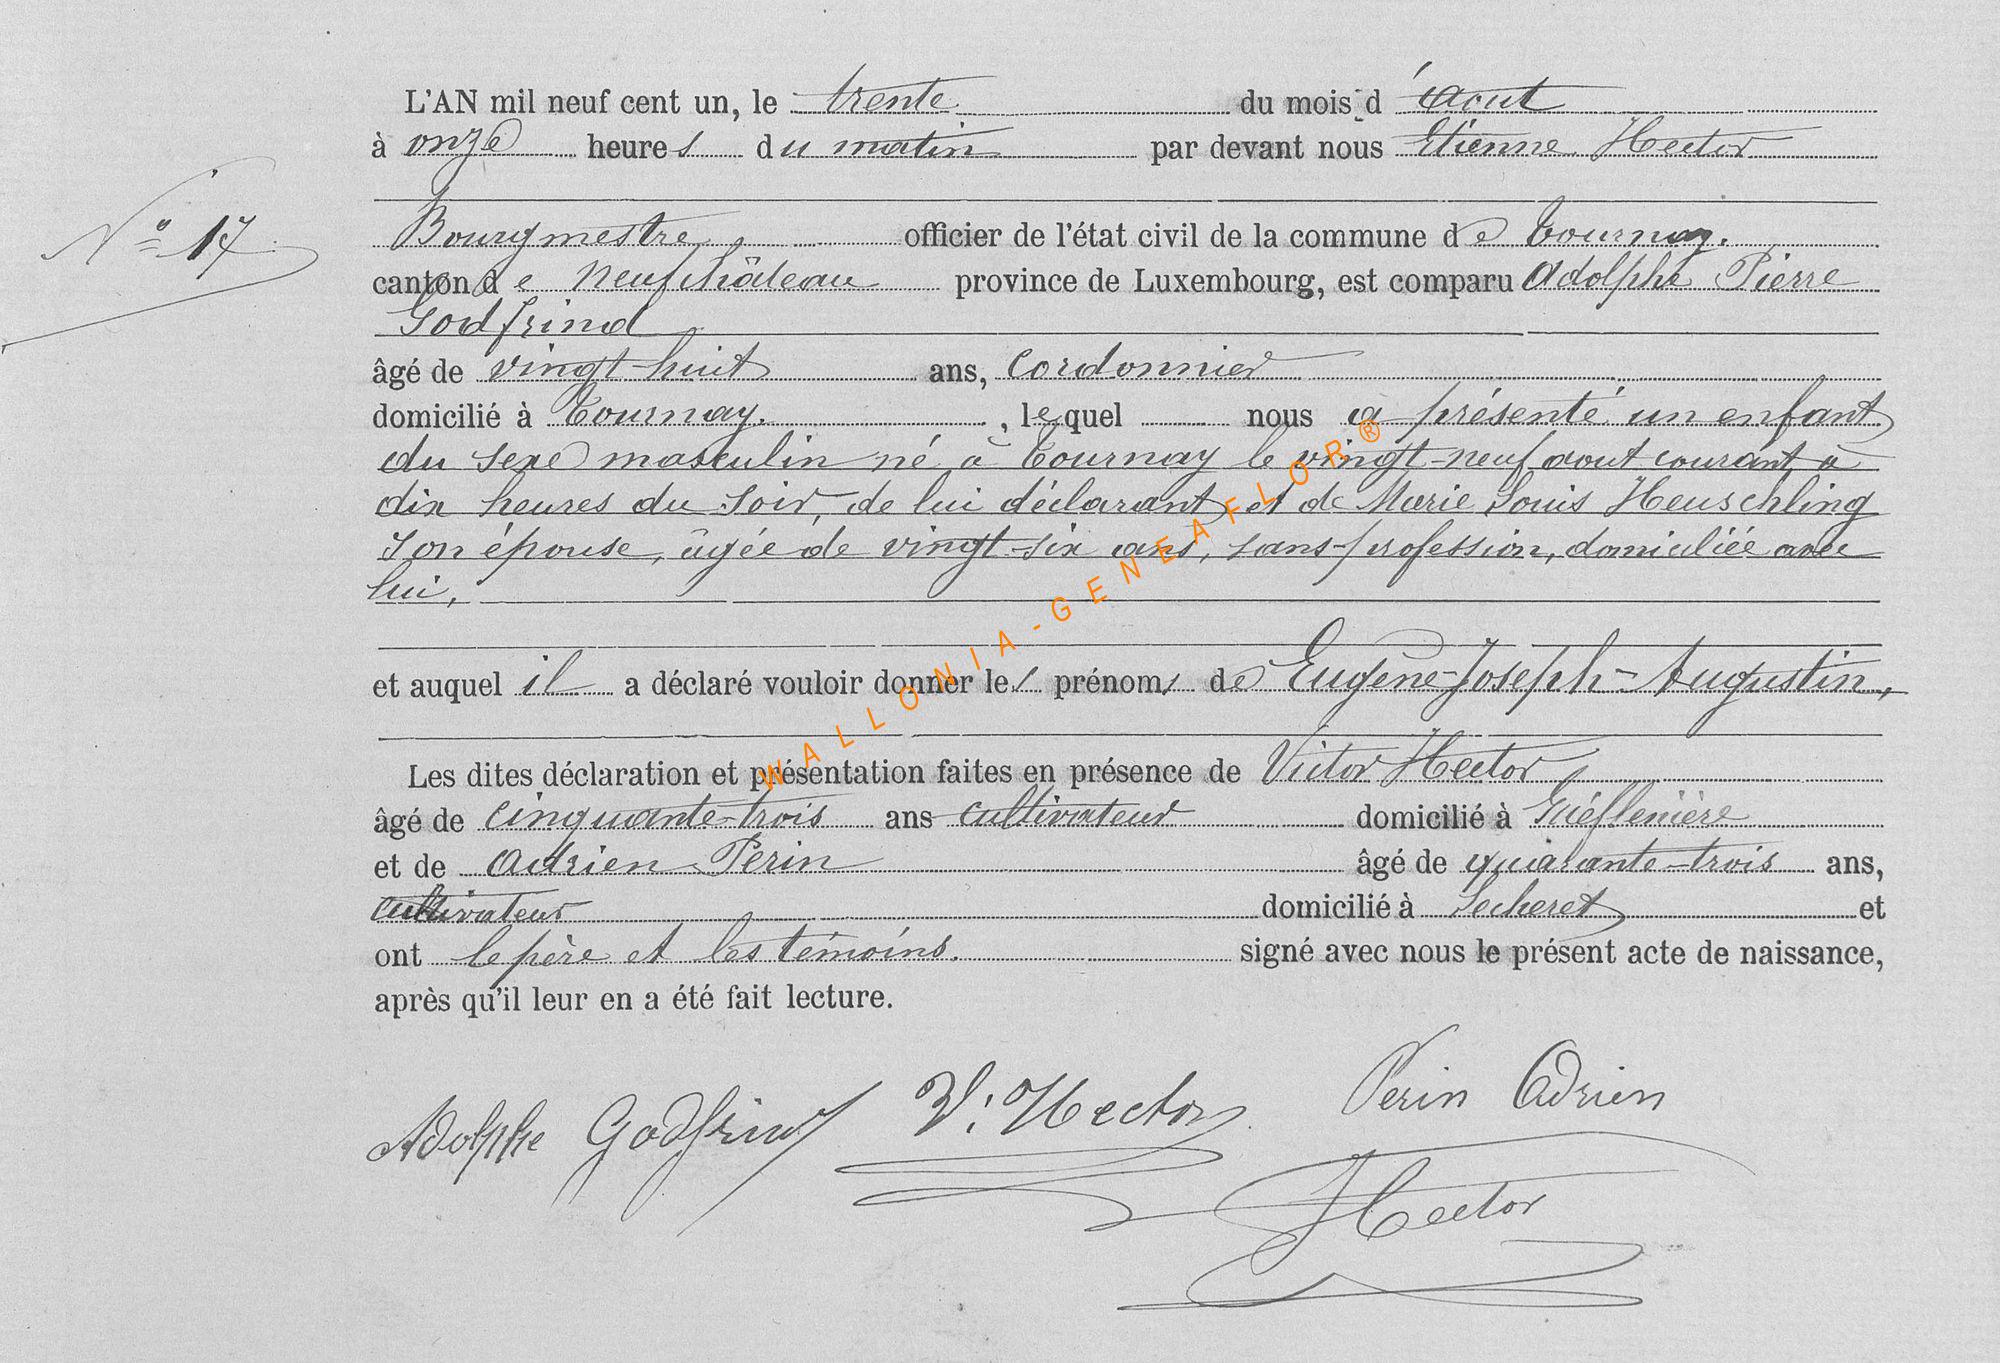 L'AN mil neuf cent un, le trente du mois d'aout
à onze heures du matin par devant nous Etienne Hector
Bourgmestre officier de l'état civil de la commune de Tournay.
N° 17
canton de Neufchâteau province de Luxembourg, est comparu Adolphe Pierre
Godfrind
âgé de vingt-huit ans, cordonnier
domicilié à Tournay. , lequel nous a présenté un enfant
du sexe masculin né à Tournay le vingt-neuf aout courant à
dix heures du soir, de lui déclarant et de Marie Louis Heuschling
son épouse, âgée de vingt-six ans, sans profession, domiciliée avec
lui,
et auquel il a déclaré vouloir donner les prénoms de Eugène-Joseph-Augustin,
Les dites déclaration et présentation faites en présence de Victor Hector
âgé de cinquante-trois ans cultivateur domicilié à
et de Adrien Perin âgé de quarante-trois ans,
cultivateur domicilié à Lecheret et
ont le père et les témoins. signé avec nous le présent acte de naissance,
après qu'il leur en a été fait lecture.
Adolphe Godfrind V. Hector Perin Adrien
Hector
WALLONIA-GENEAFLOR®